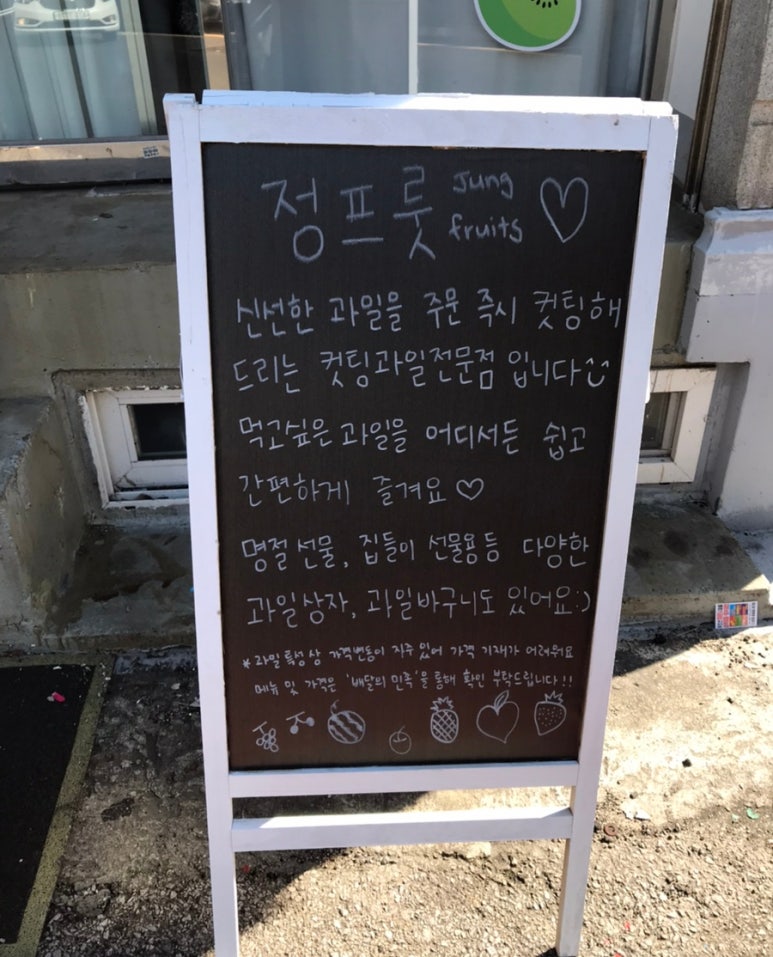 정프룻 Jung fruits ♡
신선한 과일을 주문 즉시 컷팅해
드리는 컷팅과일전문점 입니다
먹고싶은 과일을 어디서든 쉽고
간편하게 즐겨요 ♡
명절 선물, 집들이 선물용 등 다양한
과일상자, 과일바구니도 있어요 :)
* 과일 특성상 가격변동이 자주 있어 가격 기재가 어려워요
메뉴 및 가격은 '배달의 민족'을 통해 확인 부탁드립니다!!